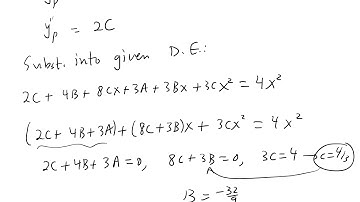 y'p
y''p = 2C
Subst. into given D.E.:
2C + 4B + 8Cx + 3A + 3Bx + 3Cx² = 4x²
(2C + 4B + 3A) + (8C + 3B)x + 3Cx² = 4x²
2C + 4B + 3A = 0, 8C + 3B = 0, 3C = 4 → C = 4/3
B = -32/9